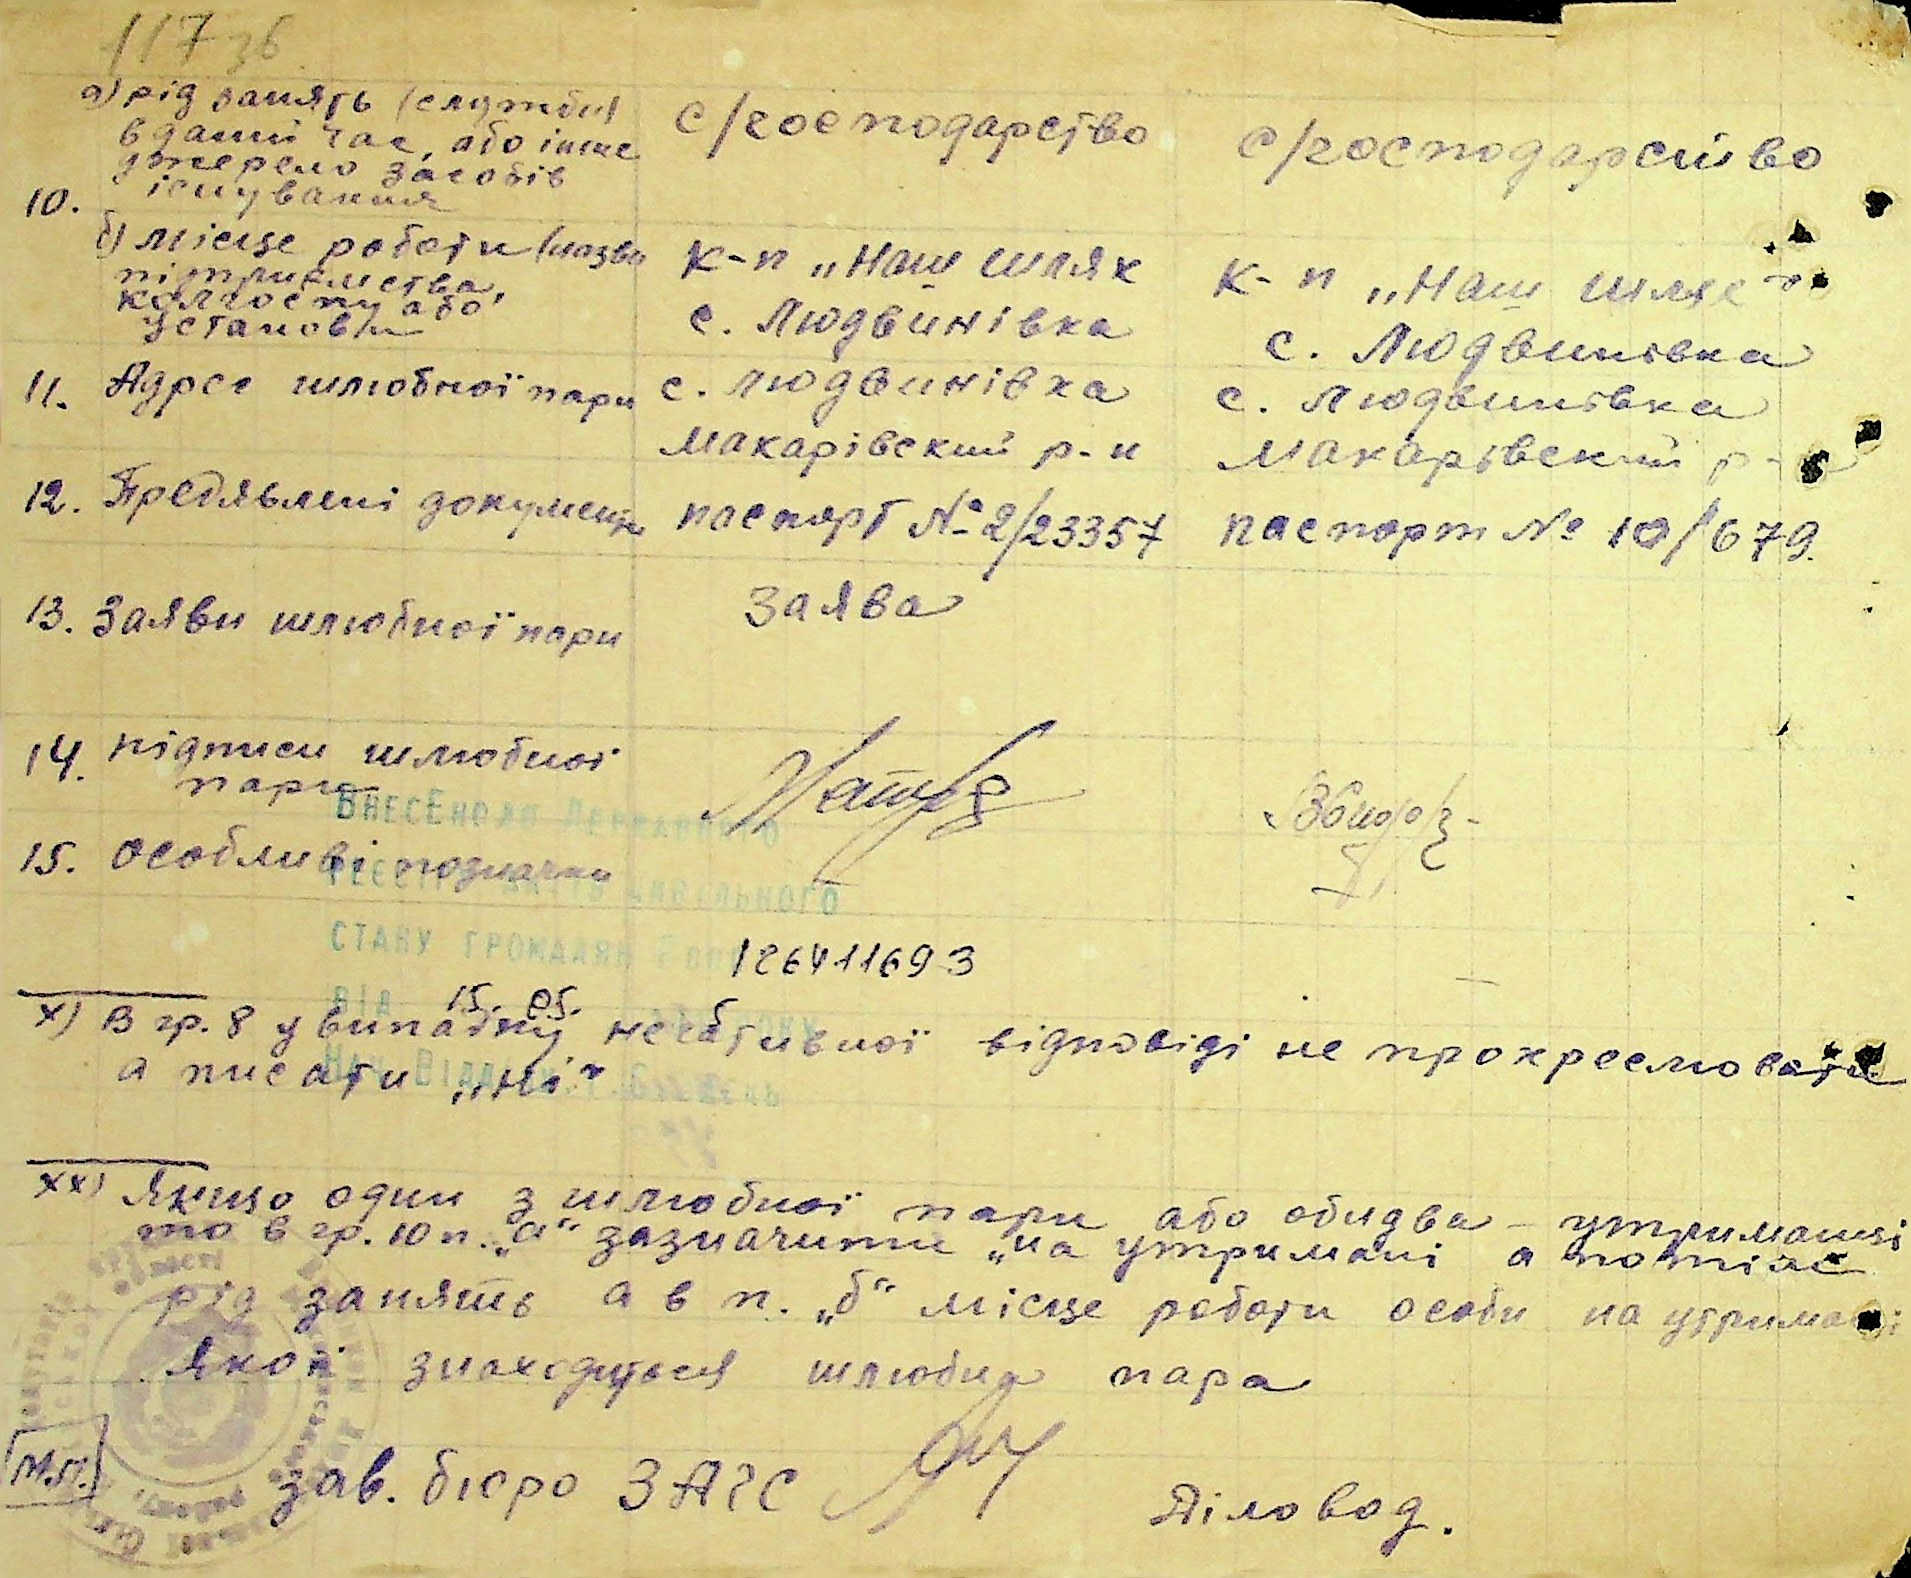 117 зб
а) рід занять (служби) с/господарство с/господарство
в даний час, або інше
джерело засобів
10. існування
б) місце роботи (назва к-п „Наш шлях к-п „Наш шлях"
підприємства,
колгоспу або с. Людвинівка с. Людвинівка
установи
11. Адрес шлюбної пари с. Людвинівка с. Людвинівка
Макарівский р-н Макарівский р-н
12. Предявлені документи паспорт № 2/23357 паспорт № 10/679.
13. Заяви шлюбної пари Заява
14. підписи шлюбної
пари
ВНЕСЕНО ДО ДЕРЖАВНОГО
15. особливі позначки
РЕЄСТРУ АКТІВ ЦИВІЛЬНОГО
СТАНУ ГРОМАДЯН 126411693
ВІД 15. 05.
х) В гр. 8 у випадку негативної відповіді не прокреслювати
а писати „ні"
хх) Якщо один з шлюбної пари або обидва – утриманці
то в гр. 10 п. „а" зазначити „на утримані а потім
рід занять а в п. „б" місце роботи особи на утримані
якої знаходиться шлюбна пара
М.П. зав. бюро ЗАГС Діловод.